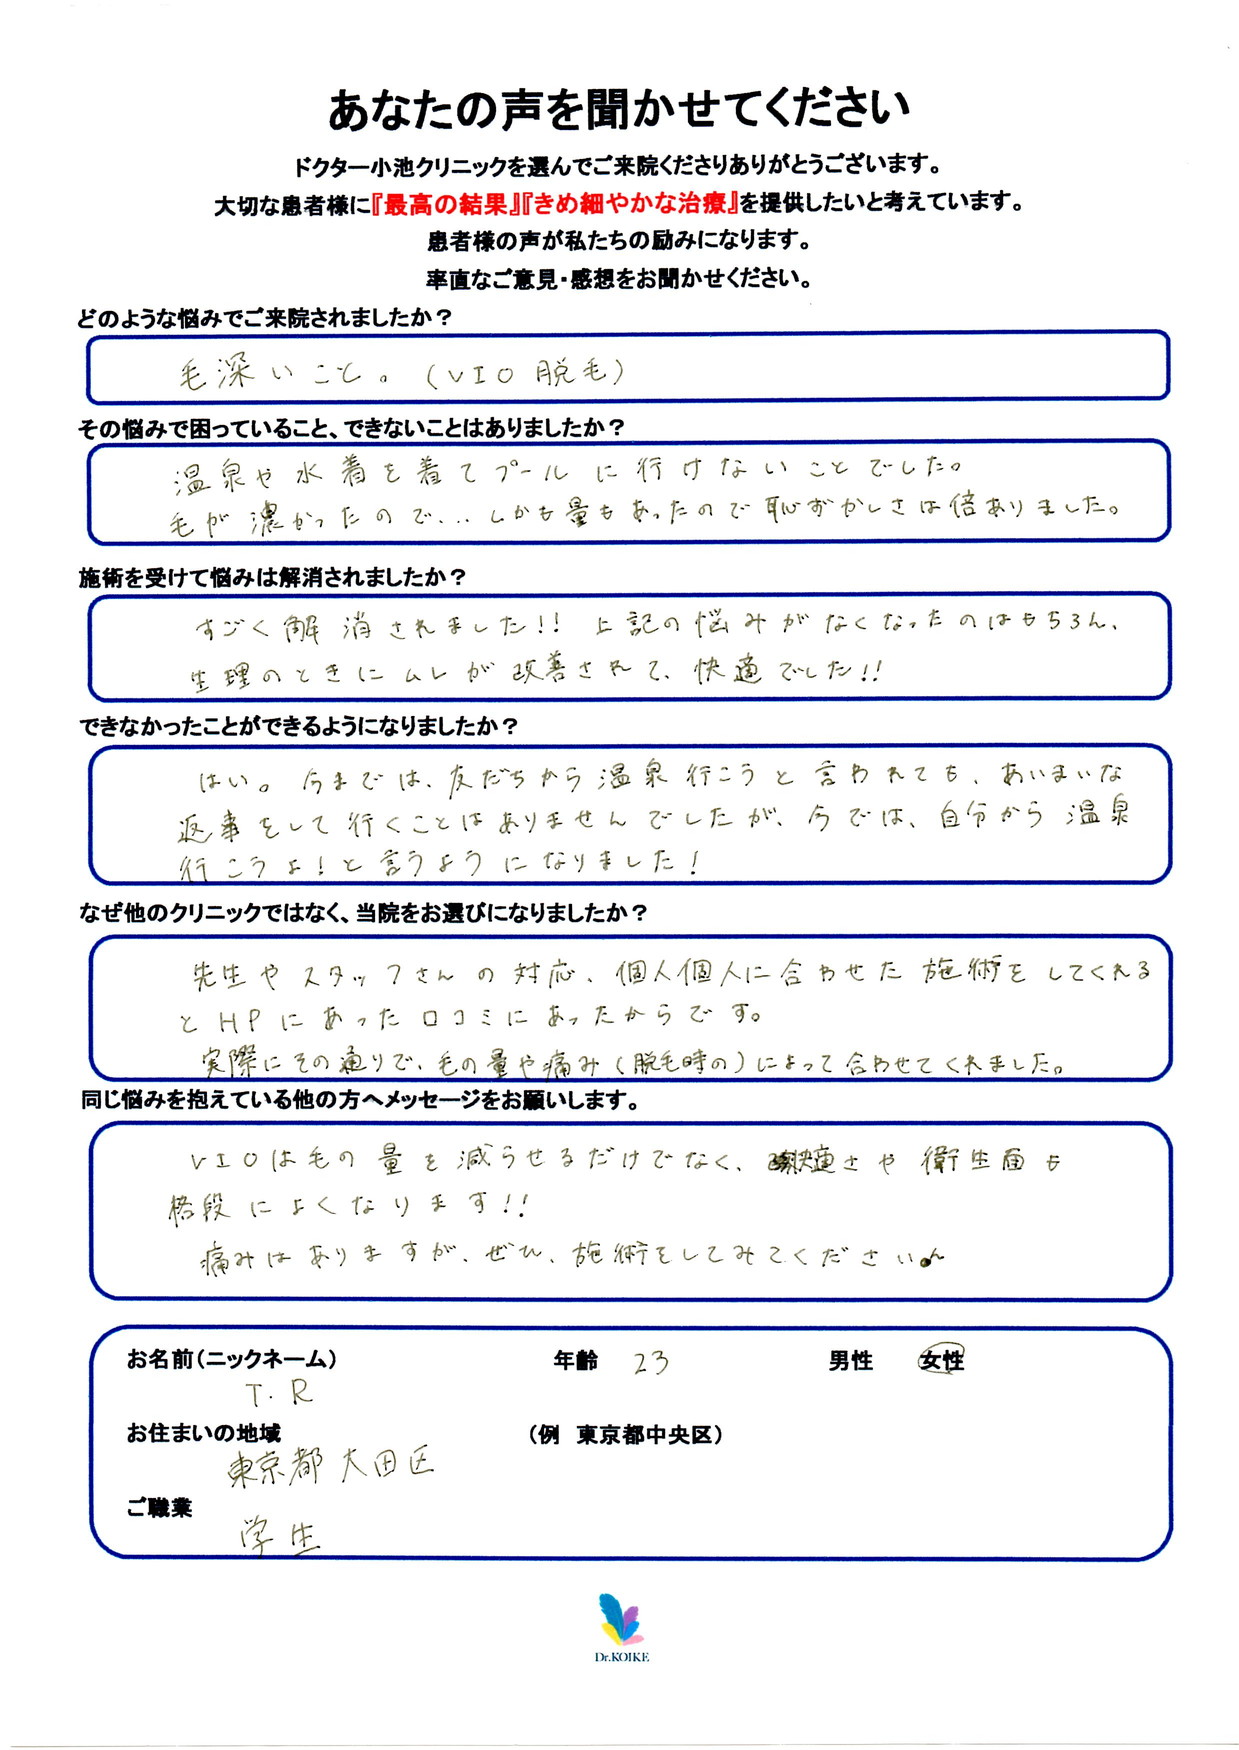 あなたの声を聞かせてください
ドクター小池クリニックを選んでご来院くださりありがとうございます。
大切な患者様に『最高の結果』『きめ細やかな治療』を提供したいと考えています。
患者様の声が私たちの励みになります。
率直なご意見・感想をお聞かせください。
どのような悩みでご来院されましたか？
毛深いこと。（VIO脱毛）
その悩みで困っていること、できないことはありましたか？
温泉や水着を着てプールに行けないことでした。
毛が濃かったので…しかも量もあったので恥ずかしさは倍ありました。
施術を受けて悩みは解消されましたか？
すごく解消されました!! 上記の悩みがなくなったのはもちろん、
生理のときにムレが改善されて、快適でした!!
できなかったことができるようになりましたか？
はい。今までは、友だちから温泉行こうと言われても、あいまいな
返事をして行くことはありませんでしたが、今では、自分から温泉
行こうよ！と言うようになりました！
なぜ他のクリニックではなく、当院をお選びになりましたか？
先生やスタッフさんの対応、個人個人に合わせた施術をしてくれる
とHPにあった口コミにあったからです。
実際にその通りで、毛の量や痛み（脱毛時の）によって合わせてくれました。
同じ悩みを抱えている他の方へメッセージをお願いします。
VIOは毛の量を減らせるだけでなく、快適さや衛生面も
格段によくなります!!
痛みはありますが、ぜひ、施術をしてみてください
お名前（ニックネーム） 年齢 23 男性 女性
T.R
お住まいの地域 （例 東京都中央区）
東京都大田区
ご職業
学生
Dr.KOIKE